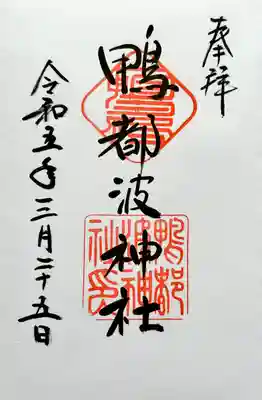 奉拝
鴨都波神社
鴨都
波神
社印
令和五年三月二十五日